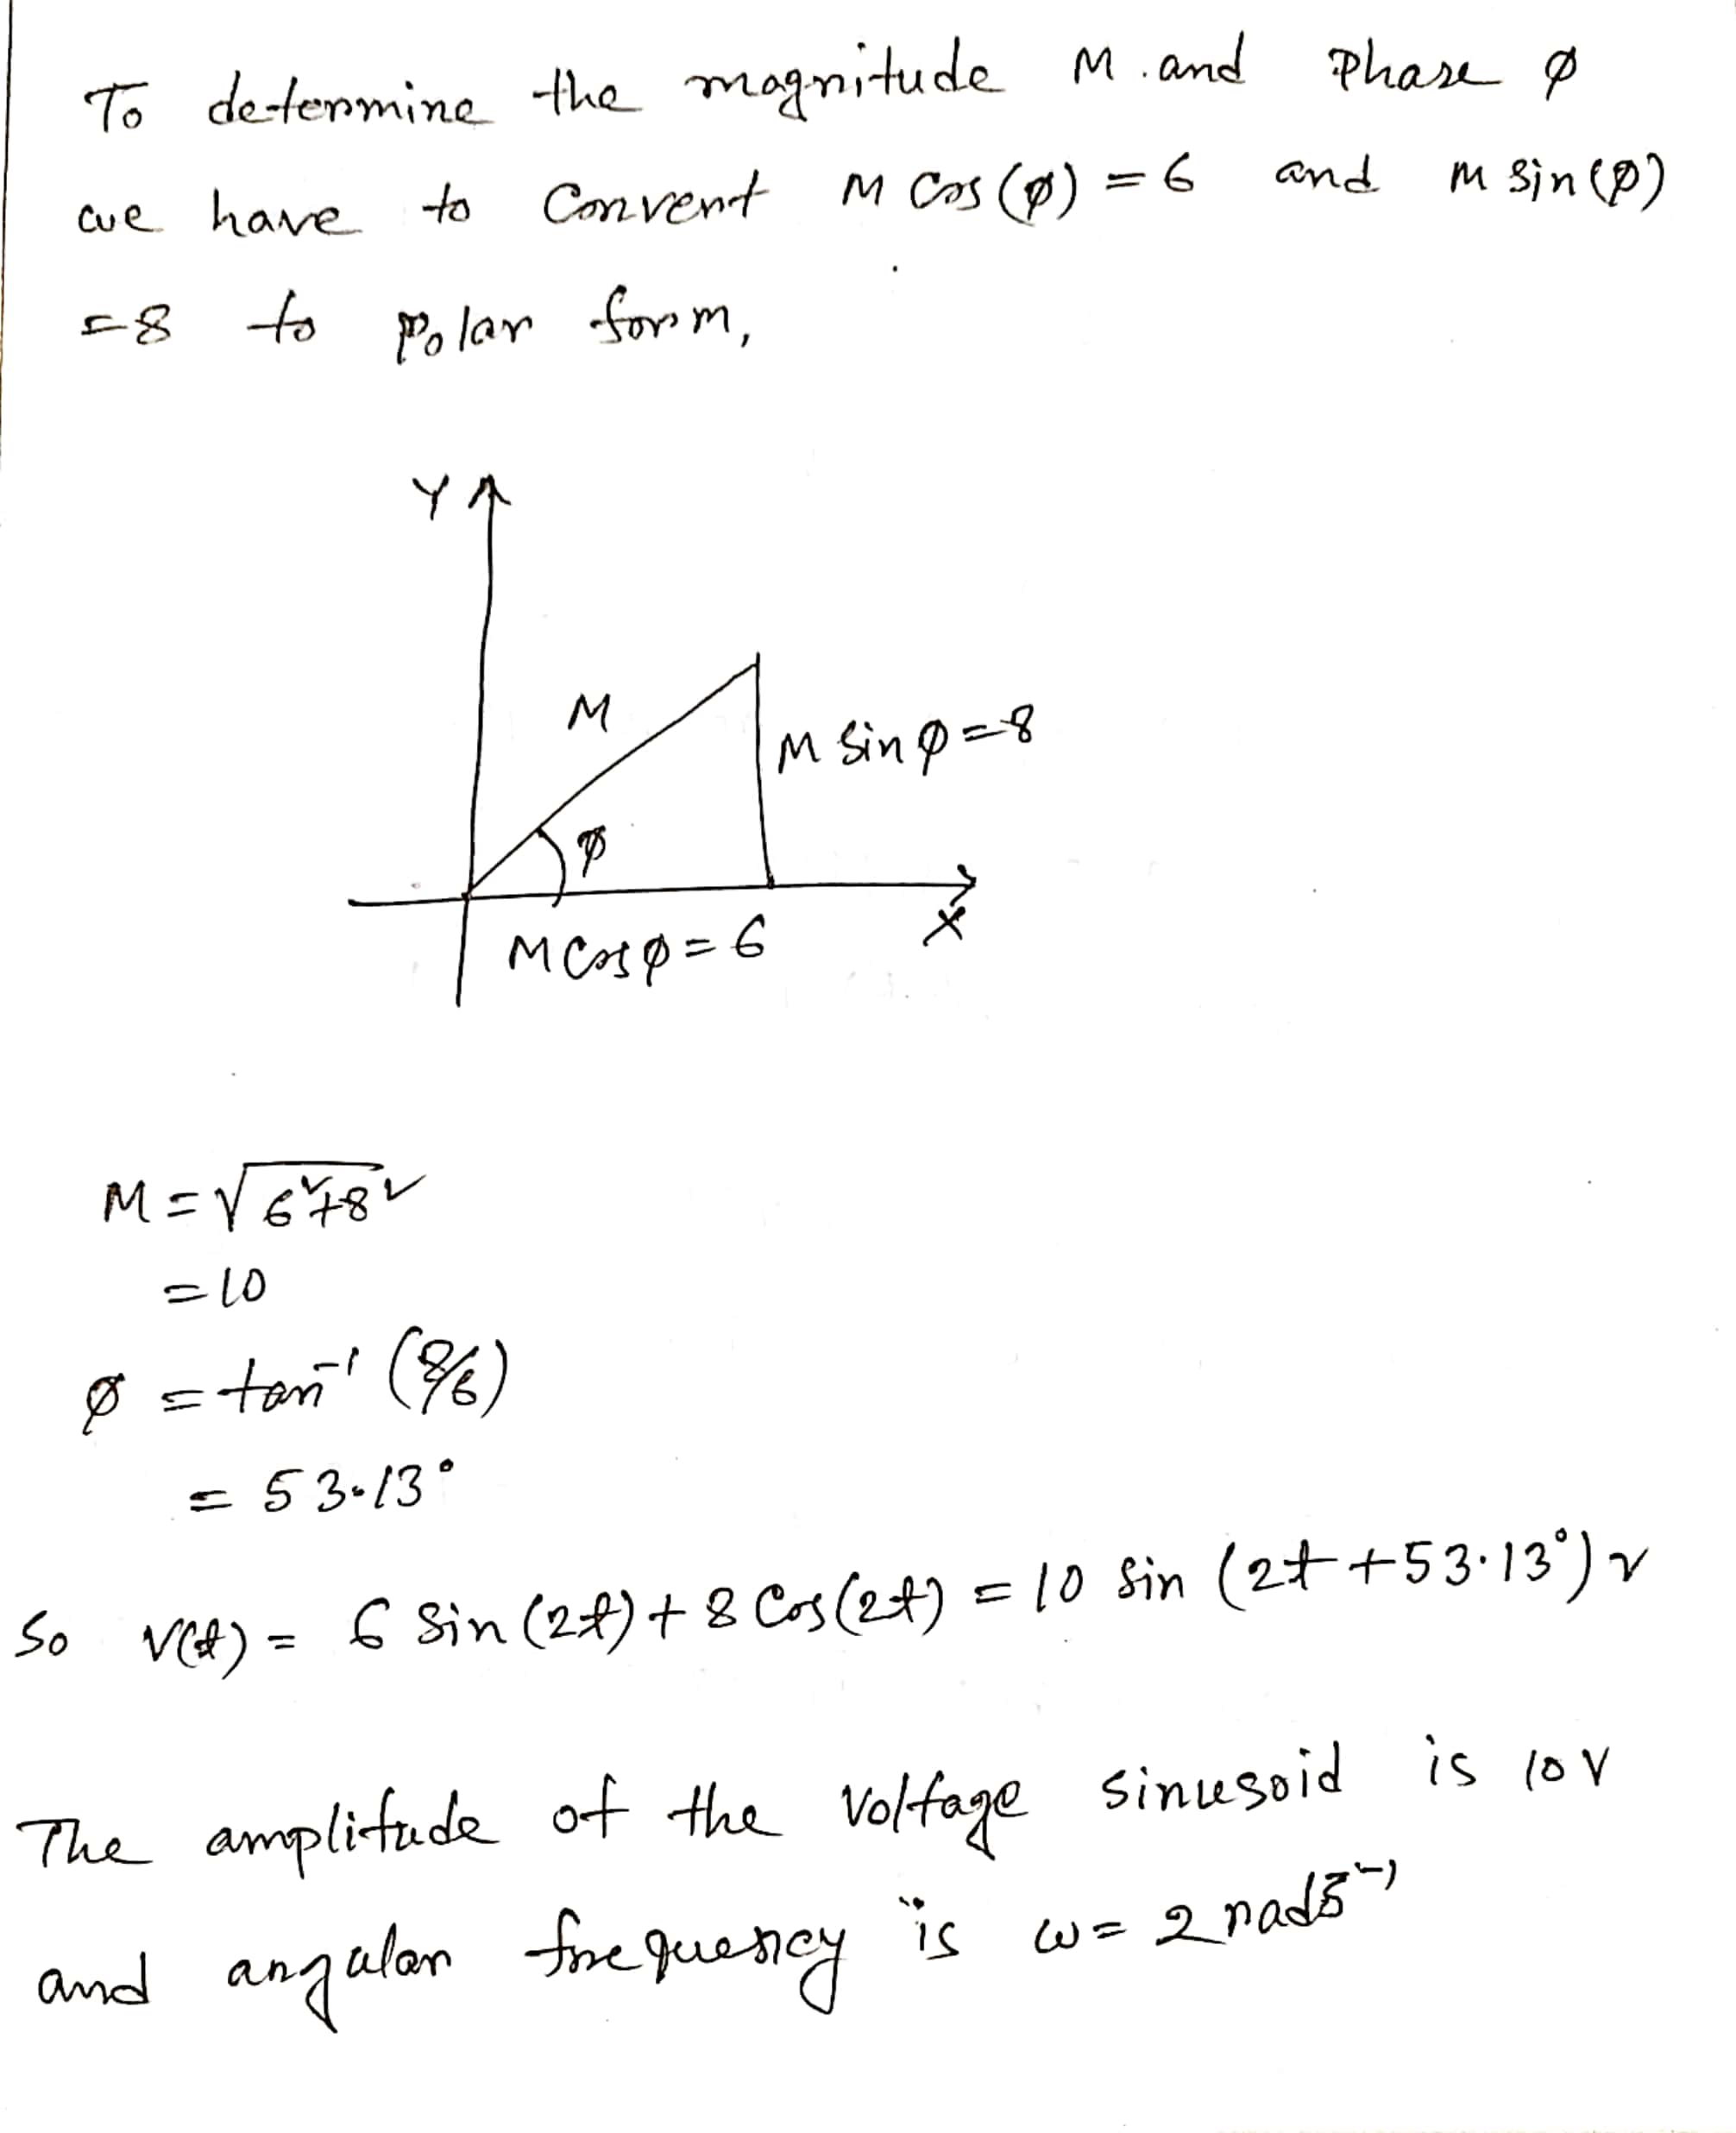 To determine the magnitude M and Phase φ
we have to Convert M Cos(φ) = 6 and M Sin(φ)
= 8 to Polar form,
Y
M
M Sin φ = 8
φ
X
M Cos φ = 6
M = √6²+8²
= 10
φ = tan⁻¹ (8/6)
= 53.13°
So V(t) = 6 Sin(2t) + 8 Cos(2t) = 10 Sin (2t + 53.13°) V
The amplitude of the Voltage sinusoid is 10V
and angular frequency is ω = 2 rads⁻¹